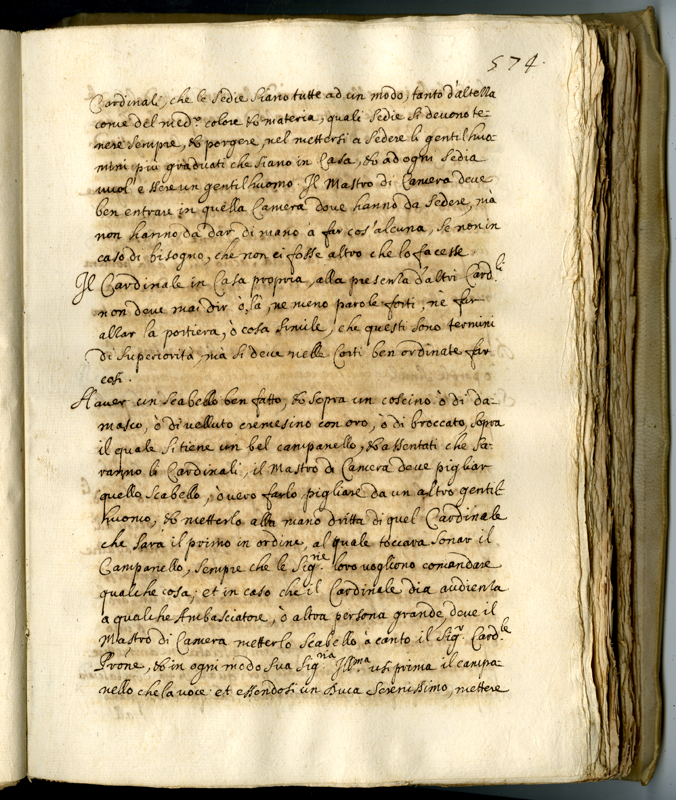 574.
Cardinali, che le sedie siano tutte ad un modo, tanto d'altezza
come del med.º colore, & materia, quali sedie si devono te-
nere sempre, & porgere, nel mettersi a sedere li gentilhuo-
mini più graduati che siano in Casa, & ad ogni sedia
vuol' essere un gentilhuomo. Il Mastro di Camera deve
ben entrare in quella Camera dove hanno da sedere, mà
non hanno da dar di mano a far cos'alcuna, se non in
caso di bisogno, che non ci fosse altro che lo facesse.
Il Cardinale in Casa propria, alla presenza d'altri Card.li
non deve mai dir ò là, ne meno parole forti, nè far
alzar la portiera, ò cosa simile, che questi sono termini
di superiorità, mà si deve nelle Corti ben ordinate far
così.
Haver un scabello ben fatto, & sopra un coscino ò di da-
masco, ò di velluto cremesino con oro, ò di broccato, sopra
il quale si tiene un bel campanello, & assentati che sa-
ranno li Cardinali, il Mastro di Camera deve pigliar
quello scabello, ò vero farlo pigliare da un altro gentil-
huomo, & metterlo alla mano dritta di quel Cardinale
che sarà il primo in ordine, al quale toccarà sonar il
Campanello, sempre che le Sig.rie loro vogliono comandare
qualche cosa; et in caso che il Cardinale dia audienza
a qualche Ambasciatore, ò altra persona grande, deve il
Mastro di Camera metter lo scabello à canto il Sig.r Card.le
Prõne, & in ogni modo sua Sig.ria Ill.ma usi prima il campa-
nello che la voce. et essendosi un Duca Serenissimo, mettere